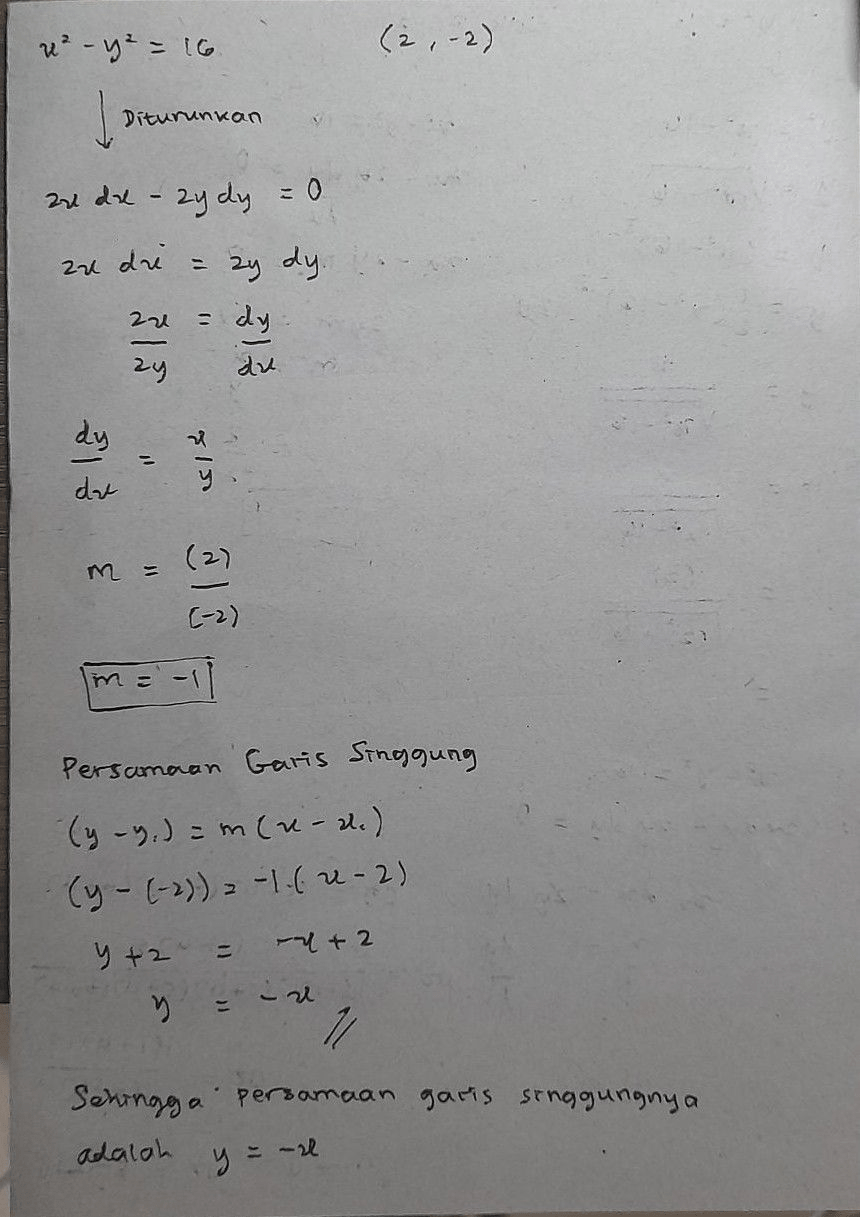 x² - y² = 16 (2, -2)
↓ Diturunkan
2x dx - 2y dy = 0
2x dx = 2y dy
2x/2y = dy/dx
dy/dx = x/y
m = (2)/(-2)
m = -1
Persamaan Garis Singgung
(y - y₁) = m (x - x₁)
(y - (-2)) = -1 (x - 2)
y + 2 = -x + 2
y = -x //
Sehingga persamaan garis singgungnya
adalah y = -x